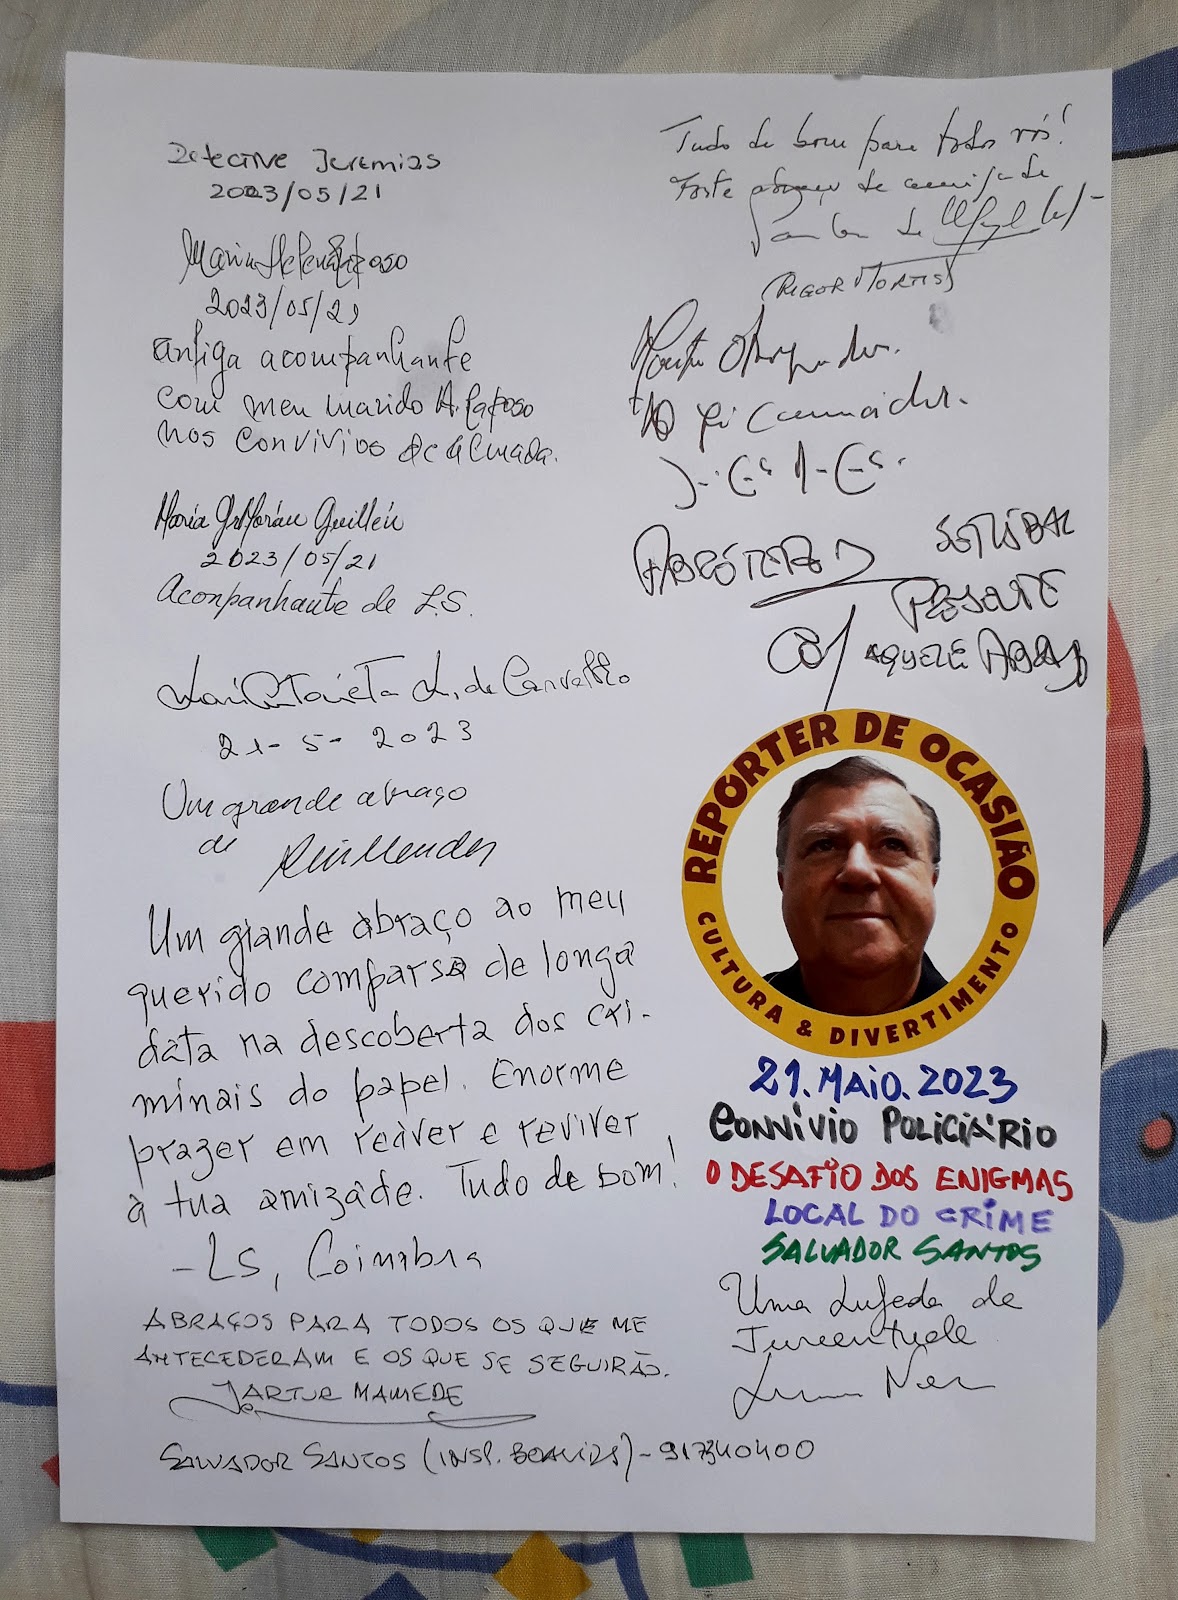 Detective Jeremias
2023/05/21
Maria Helena Raposo
2023/05/21
antiga acompanhante
com meu marido A. Raposo
nos convivios de Almada.
Maria Guilléu
2023/05/21
Aconpanhante de L.S.
L. de Carvalho
21-5-2023
Um grande abraço
de Rui Mendes
Um grande abraço ao meu
querido comparsa de longa
data na descoberta dos cri-
minais do papel. Enorme
prazer em reaver e reviver
a tua amizade. Tudo de bom!
- LS, Coimbra
ABRAÇOS PARA TODOS OS QUE ME
ANTECEDERAM E OS QUE SE SEGUIRÃO.
JARTUR MAMEDE
SALVADOR SANTOS (INSP. BOAVIDA) - 917340400
Tudo de bom para todos vós!
Forte abraço de amizade
(RIGOR MORTIS)
SETÚBAL
PRESENTE
AQUELE ABRAÇO
REPÓRTER DE OCASIÃO
CULTURA & DIVERTIMENTO
21. MAIO. 2023
CONVÍVIO POLICIÁRIO
O DESAFIO DOS ENIGMAS
LOCAL DO CRIME
SALVADOR SANTOS
Uma lufada de
Juventude